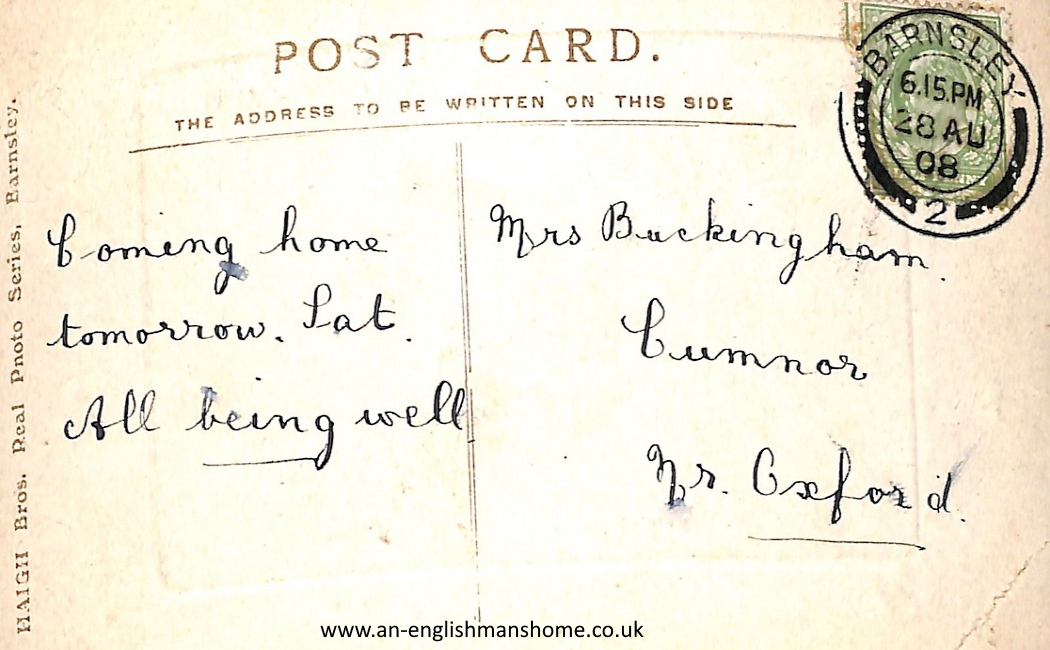 POST CARD.
THE ADDRESS TO BE WRITTEN ON THIS SIDE
BARNSLEY
6.15.PM
28 AU
08
2
HAIGH Bros. Real Photo Series, Barnsley.
Coming home
tomorrow. Sat.
All being well
Mrs Buckingham.
Cumnor
Nr. Oxford.
www.an-englishmanshome.co.uk